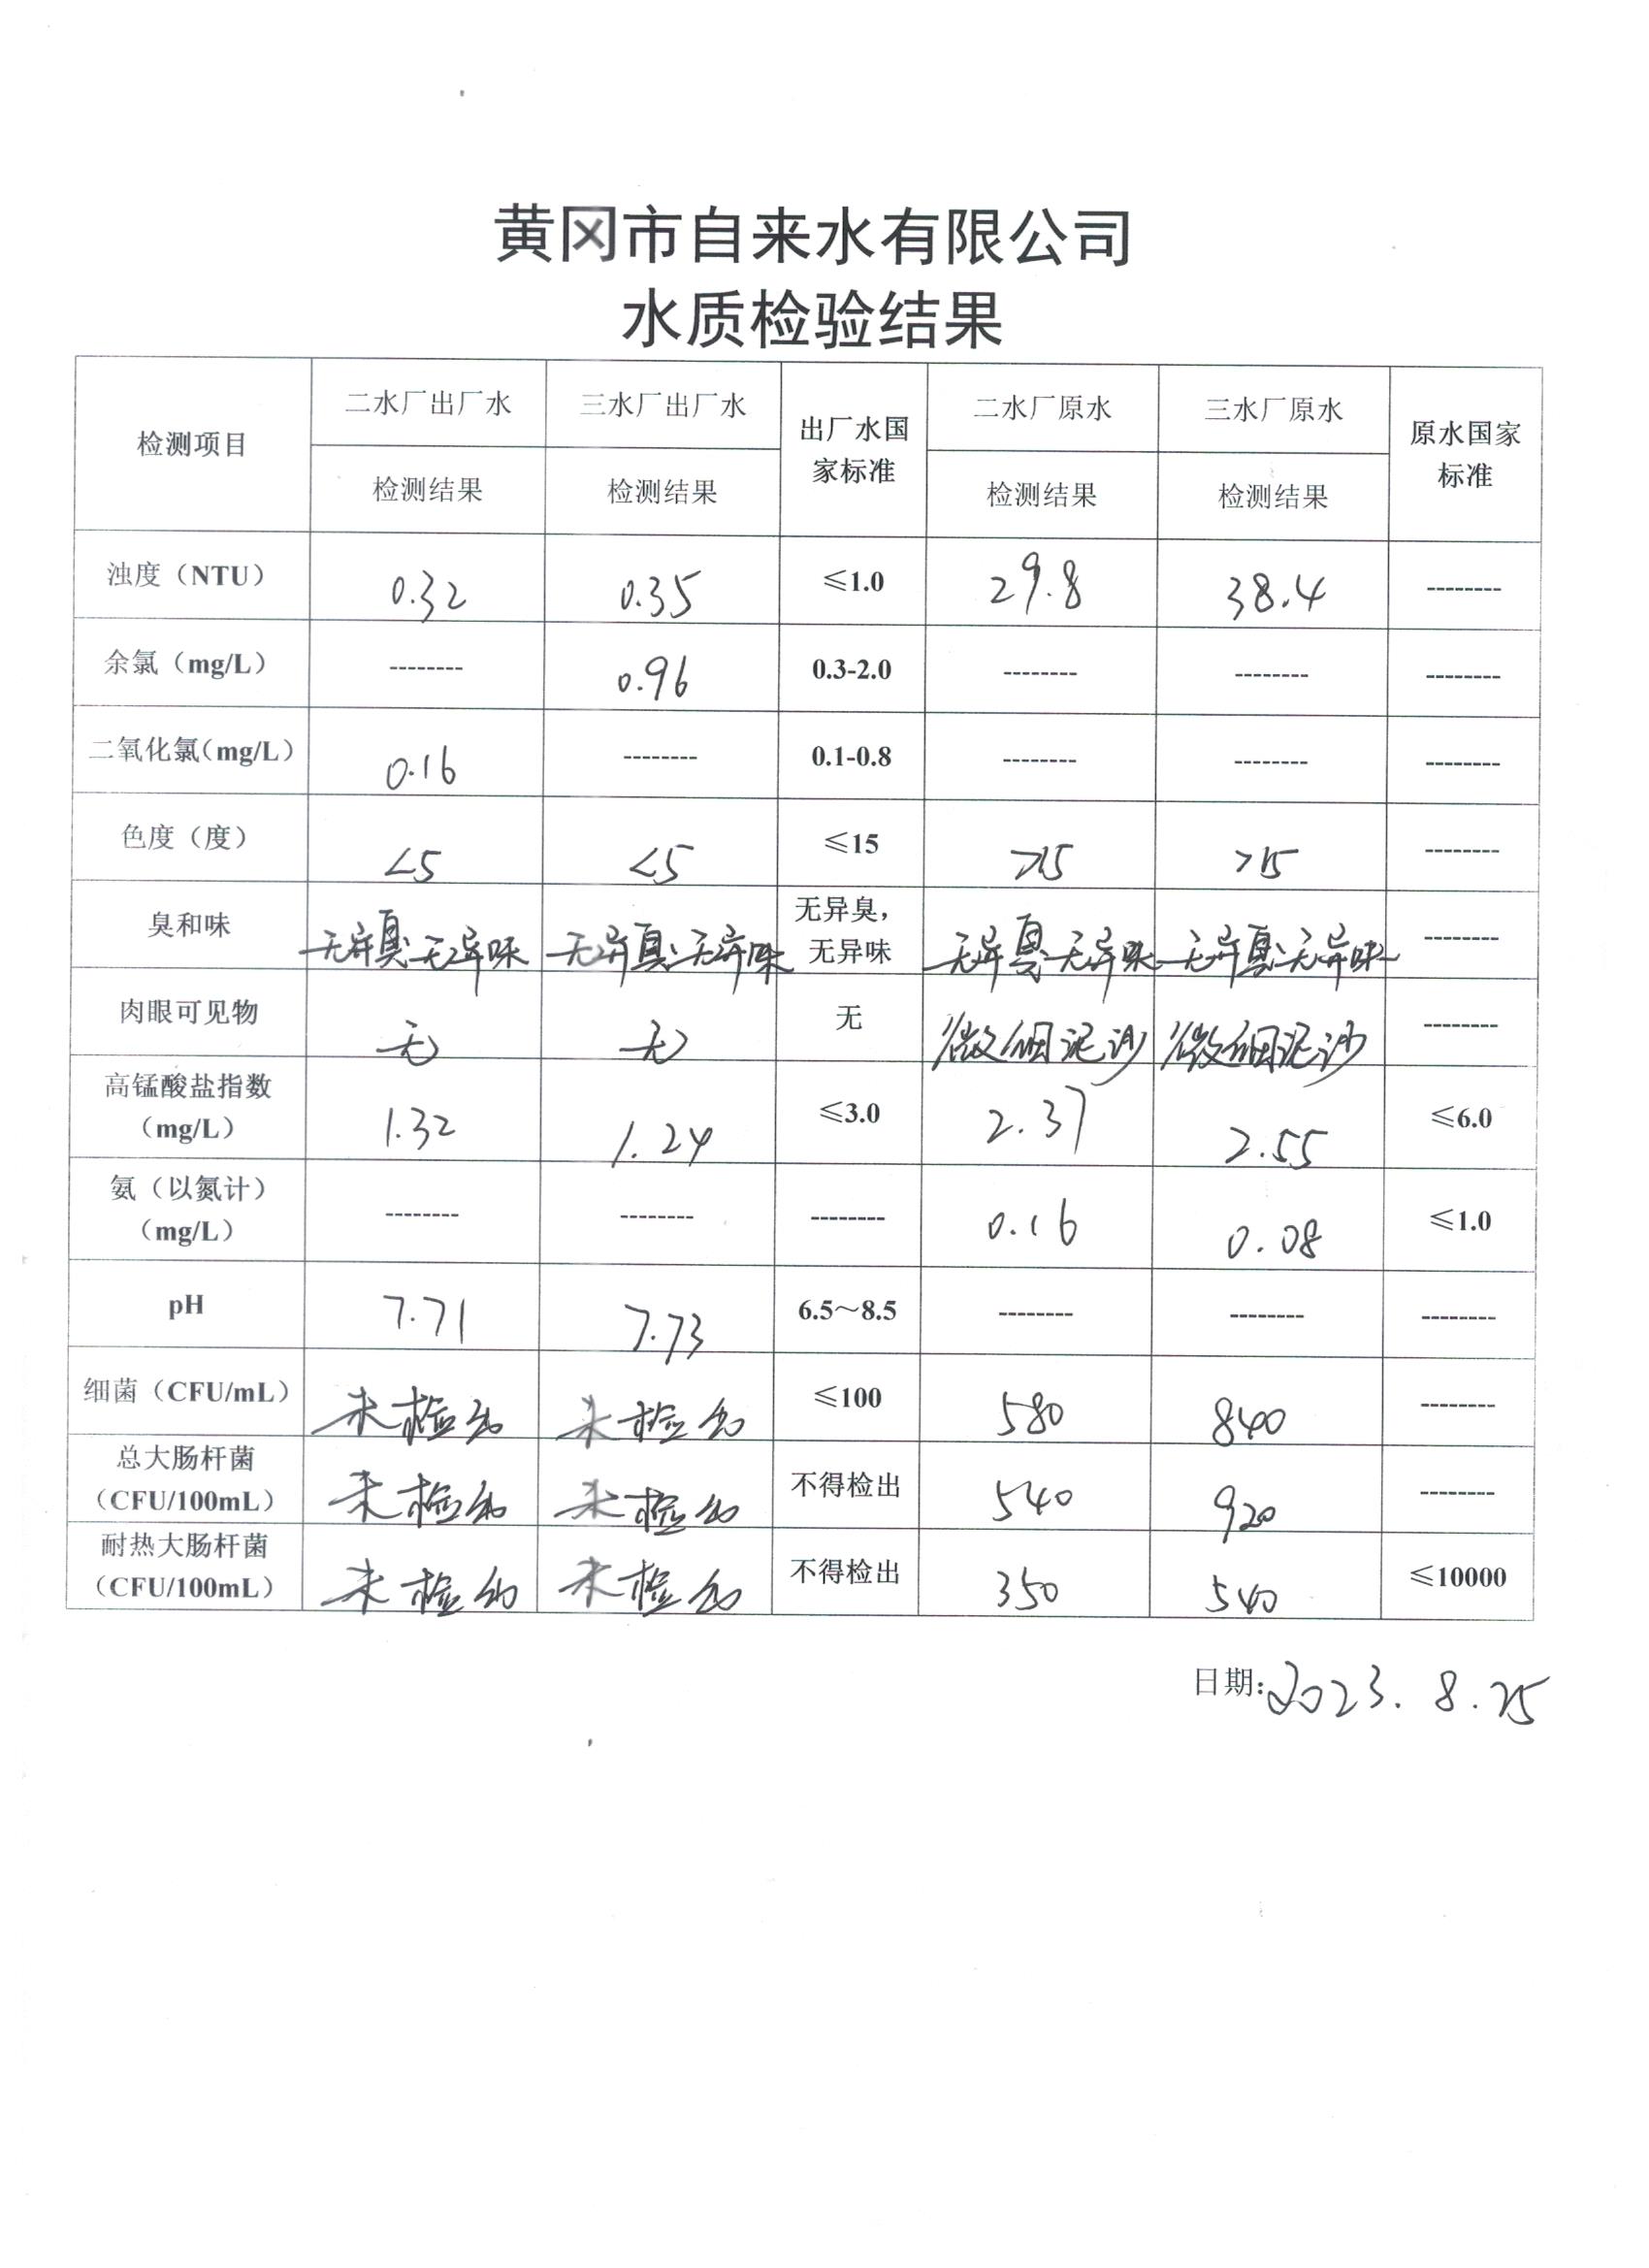 黄冈市自来水有限公司
水质检验结果
检测项目 二水厂出厂水 三水厂出厂水 出厂水国家标准 二水厂原水 三水厂原水 原水国家标准
检测结果 检测结果 检测结果 检测结果
浊度（NTU） 0.32 0.35 ≤1.0 29.8 38.4 --------
余氯（mg/L） -------- 0.96 0.3-2.0 -------- -------- --------
二氧化氯（mg/L） 0.16 -------- 0.1-0.8 -------- -------- --------
色度（度） <5 <5 ≤15 >15 >15 --------
臭和味 无异臭;无异味 无异臭;无异味 无异臭，无异味 无异臭;无异味 无异臭;无异味 --------
肉眼可见物 无 无 无 微细泥沙 微细泥沙 --------
高锰酸盐指数（mg/L） 1.32 1.24 ≤3.0 2.37 2.55 ≤6.0
氨（以氮计）（mg/L） -------- -------- -------- 0.16 0.08 ≤1.0
pH 7.71 7.73 6.5～8.5 -------- -------- --------
细菌（CFU/mL） 未检出 未检出 ≤100 580 840 --------
总大肠杆菌（CFU/100mL） 未检出 未检出 不得检出 540 920 --------
耐热大肠杆菌（CFU/100mL） 未检出 未检出 不得检出 350 540 ≤10000
日期：2023.8.25